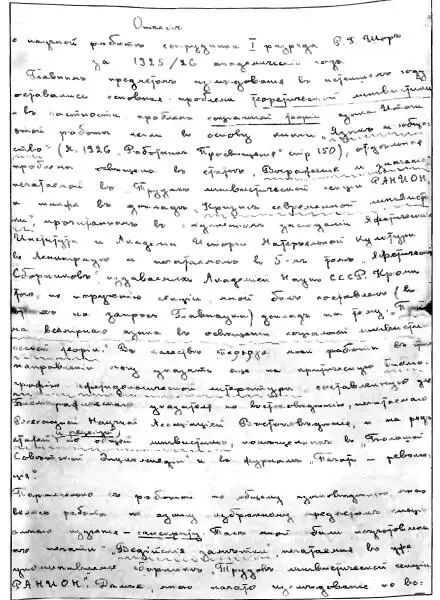 Отчет
о научной работе сотрудника I разряда Р. О. Шор
за 1925/26 академический год.
Главным предметом исследования в истекшем году
оставались основная проблема теоретической лингвистики
и в частности проблема социальной теории языка. Итоги
этой работы легли в основу книги "Язык и общество
ство" (М. 1926, "Работник Просвещения" стр 150), отдельная
проблема освещена в статье "Выражение и значение"
печатаемой в Трудах лингвистической секции РАНИОН,
а также в докладе "Кризис современной лингвисти
ки", прочитанном в заседании Яфетического
Института и Академии Истории Материальной Культуры
в Ленинграде и печатаемом в 5-м томе "Яфетических
Сборников", издаваемых Академией Наук СССР. Кроме
того, по поручению секции, мной был поставлен (в
ответ на запрос Главнауки) доклад на тему:
всемирного языка в освещении социальной лингвисти
ческой теории." В качестве моей работы в этом
направлении могу указать еще на критическую библио
графию литературы составленную для
Библиографического указателя по востоковедению, печатаемого
Всесоюзной Научной Ассоциацией Востоковедения, и на ряд
статей и рецензий по общей лингвистике, помещенных в "Большой
Советской Энциклопедии" и в журнале "Печать и револю
ция".
Параллельно с работой по общему языковедению, мною
велась работа по
изучения - санскриту. Так мной были подготовлены
к печати "Ведийские заметки", печатаемые в уже
сборнике "Трудов лингвистической секции
РАНИОН". Далее, мною начато исследование по во-